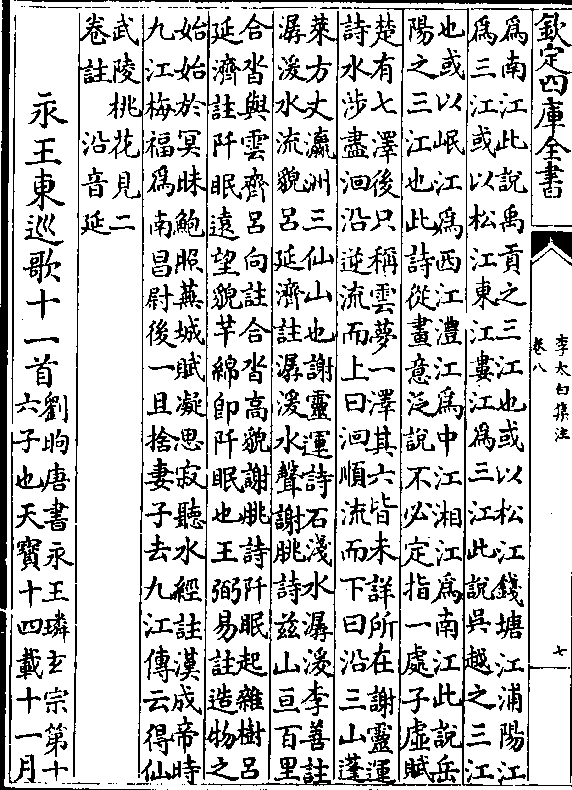 欽定四庫全書
李太白集注
卷八
七
爲南江此說禹貢之三江也或以松江錢塘江浦陽江
爲三江或以松江東江婁江爲三江此說吳越之三江
也或以岷江爲西江澧江爲中江湘江爲南江此說岳
陽之三江也此詩從畫意泛說不必定指一處子虛賦
楚有七澤後只稱雲夢一澤其六皆未詳所在謝靈運
詩水涉盡洄沿逆流而上曰洄順流而下曰沿三山蓬
萊方丈瀛洲三仙山也謝靈運詩石淺水潺湲李善註
潺湲水流貌呂延濟註潺湲水聲謝朓詩茲山亘百里
合沓與雲齊呂向註合沓高貌謝朓詩阡眠起雜樹呂
延濟註阡眠遠望貌芊綿卽阡眠也王弼易註造物之
始始於冥昧鮑照蕪城賦凝思寂聽水經註漢成帝時
九江梅福爲南昌尉後一旦捨妻子去九江傳云得仙
武陵桃花見二
卷註 沿音延
永王東巡歌十一首
劉昫唐書永王璘玄宗第十
六子也天寶十四載十一月